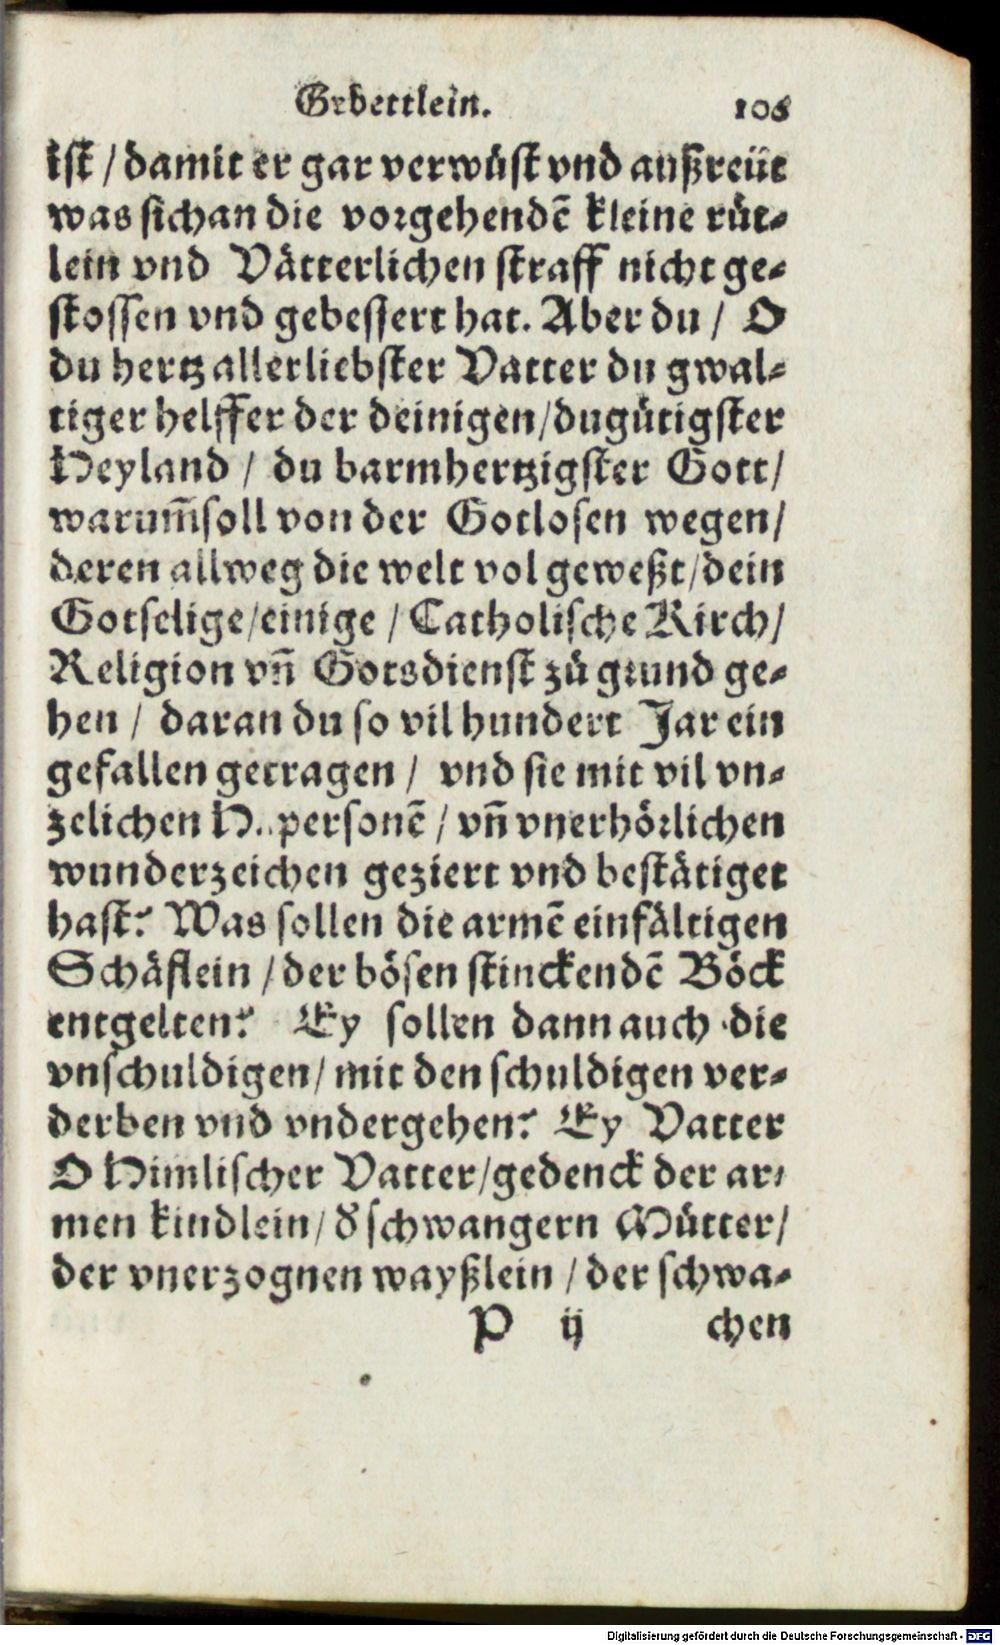 Gebettlein. 106
ist / damit er gar verwůst vnd außreüt
was sich an die vorgehendẽ kleine růt-
lein vnd Vätterlichen straff nicht ge-
stossen vnd gebessert hat. Aber du / O
du hertz allerliebster Vatter du gwal-
tiger helffer der deinigen/du gůtigster
Heyland / du barmhertzigster Gott/
warum̃ soll von der Gotlosen wegen/
deren allweg die welt vol geweßt/dein
Gotselige/einige / Catholische Kirch/
Religion vñ Gotsdienst zů grund ge-
hen / daran du so vil hundert Jar ein
gefallen getragen / vnd sie mit vil vn-
zelichen H. personẽ / vñ vnerhörlichen
wunderzeichen geziert vnd bestätiget
hast? Was sollen die armẽ einfältigen
Schäflein / der bösen stinckendẽ Böck
entgelten? Ey sollen dann auch die
vnschuldigen/ mit den schuldigen ver-
derben vnd vndergehen? Ey Vatter
O Himlischer Vatter/gedenck der ar-
men kindlein/ d' schwangern Mütter/
der vnerzognen wayßlein / der schwa-
P ij chen
Digitalisierung gefördert durch die Deutsche Forschungsgemeinschaft - DFG